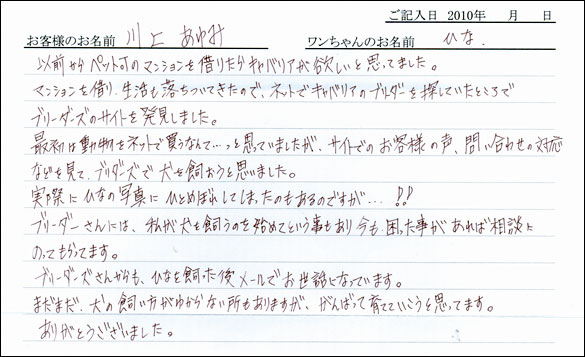 ご記入日 2010年 月 日
お客様のお名前 川上 あゆみ ワンちゃんのお名前 ひな.
以前からペット可のマンションを借りたらキャバリアが欲しいと思ってました。
マンションを借り、生活も落ちついてきたので、ネットでキャバリアのブリーダーを探していたところで
ブリーダーズのサイトを発見しました。
最初は動物をネットで買うなんて…っと思っていましたが、サイトでのお客様の声、問い合わせの対応
などを見て、ブリダーズで犬を飼おうと思いました。
実際にひなの写真にひとめぼれしてしまったのもあるのですが…!!
ブリーダーさんには、私が犬を飼うのを始めてという事もあり今も、困った事があれば相談に
のってもらってます。
ブリーダーズさんからも、ひなを飼った後メールでお世話になっています。
まだまだ、犬の飼い方がわからない所もありますが、がんばって育てていこうと思ってます。
ありがとうございました。